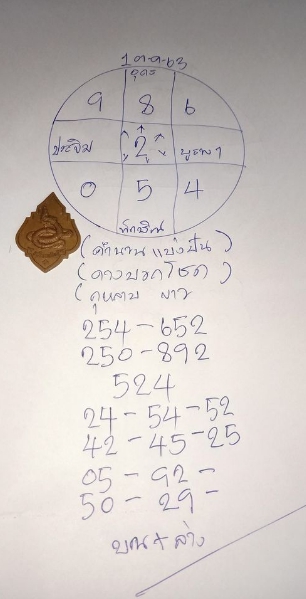 1 ต-ค-63
อุดร
9 8 6
ประจิม 2 บูรพา
0 5 4
ทักษิณ
(คำนวน แบ่งปัน)
(ดวงบอกโชค)
(กุหลาบ ขาว
254-652
250-892
524
24-54-52
42-45-25
05-92-
50-29-
บน+ล่าง